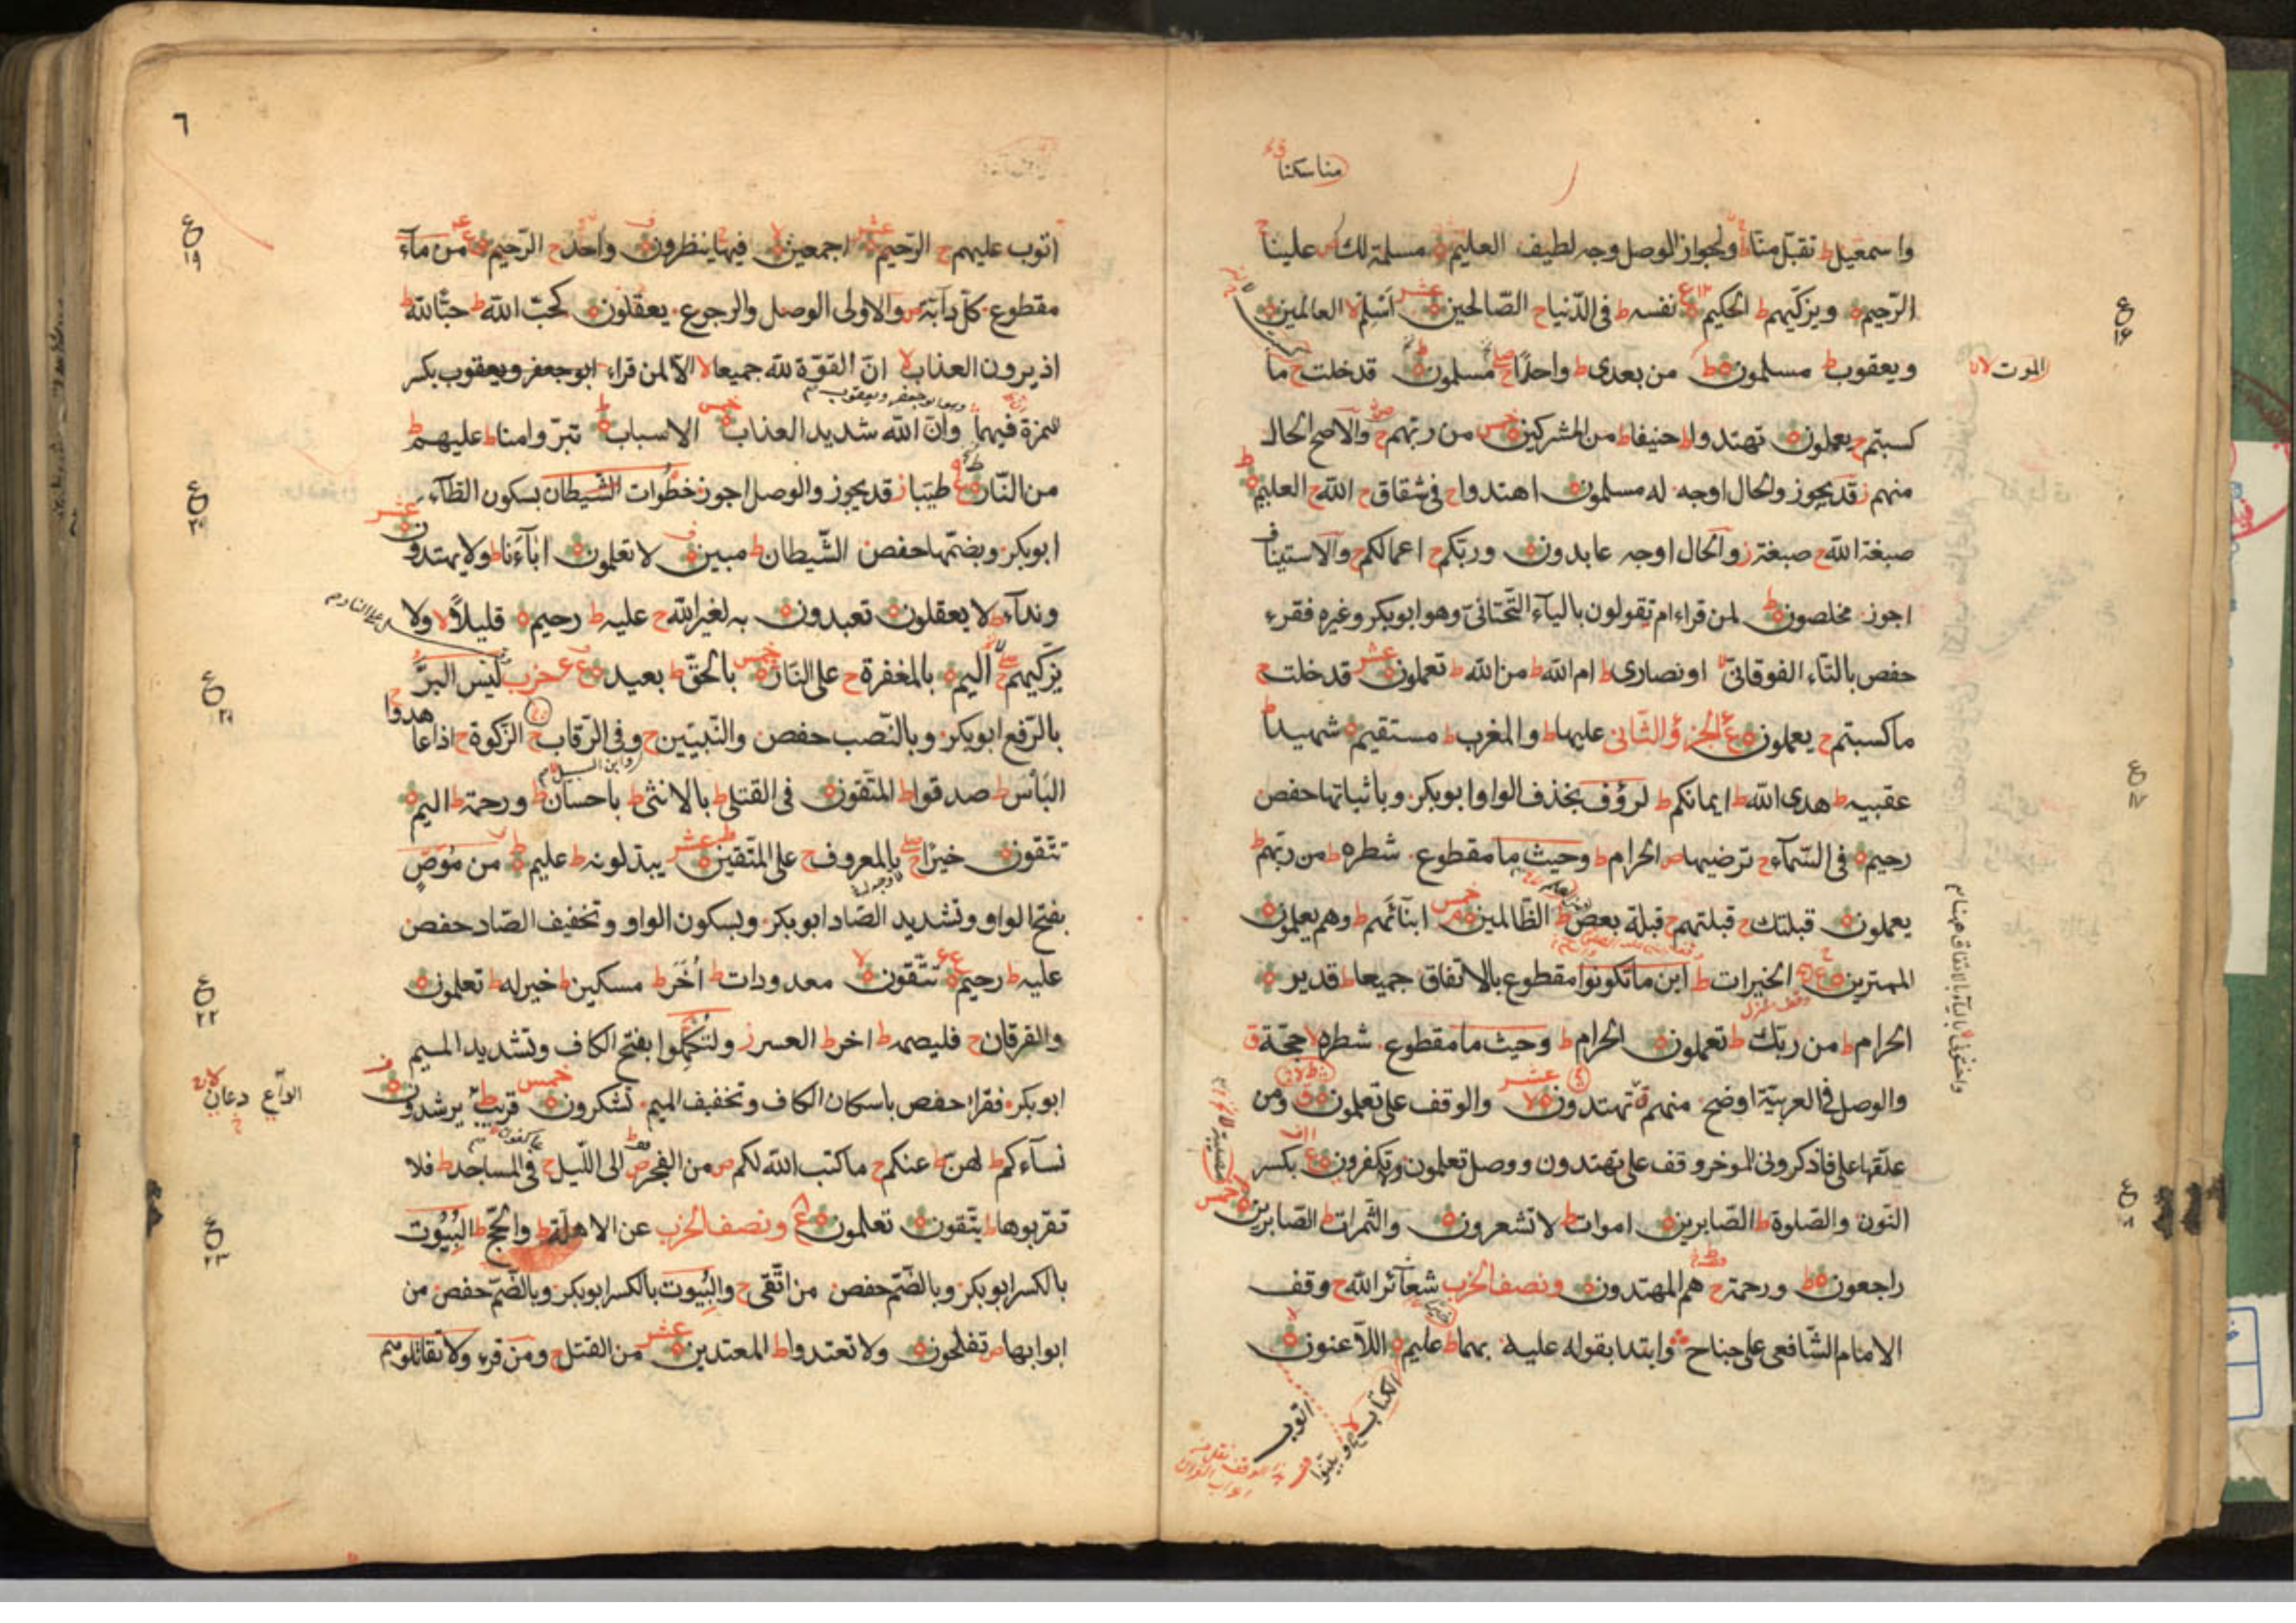 مناسكنا
واسمعيل ط تقبل منا ط ولجواز الوصل وجه لطيف العليم مسلمة لك ص علينا ج
الرحيم ويزكيهم ط الحكيم ع نفسه ط في الدنيا ج الصالحين عشر اسلم لا العالمين
ويعقوب ط مسلمون ط من بعدى ط واحدا ج مسلمون قد خلت ج ما
الموت لا
كسبتم ج يعملون تهتدوا ط حنيفا ط من المشركين خمس من ربهم ج والاصح الحال
منهم ز قد يجوز والحال اوجه له مسلمون اهتدوا ج في شقاق ج الله ج العليم ط
صبغة الله ج صبغة ز والحال اوجه عابدون وربكم ج اعمالكم ج والاستيناف
اجوز مخلصون ط لمن قراء ام تقولون بالياء التحتاني وهو ابوبكر وغيره فقرء
حفص بالتاء الفوقاني او نصارى ط ام الله ط من الله ط تعملون عشر قد خلت ج
ما كسبتم ج يعملون ع الجزؤ الثاني عليها ط والمغرب ط مستقيم شهيدا ط
عقبيه ط هدى الله ط ايمانكم ط لرؤف بحذف الواو ابوبكر وباثباتها حفص
رحيم في السماء ج ترضيها ص الحرام ط وحيث ما مقطوع شطره ط من ربهم ط
يعملون قبلتك ج قبلتهم ج قبلة بعض ط الظالمين خمس ابنائهم ط وهم يعلمون
الممترين ع الخيرات ط اين ما تكونوا مقطوع بالاتفاق جميعا ط قدير
الحرام ط من ربك ط تعملون الحرام ط وحيث ما مقطوع شطره لا حجة ق
والوصل في العربية اوضح منهم تهتدون لا عشر والوقف على تعلمون ق ومن
علقها على فاذكروني الموخر وقف على تهتدون ووصل تعلمون وتكفرون ع بكسر
النون والصلوة ط الصابرين اموات ط لا تشعرون والثمرات ط الصابرين
خمس
راجعون ط ورحمة ج هم المهتدون ونصف الحزب شعائر الله ج وقف
الامام الشافعي على جناح وابتدا بقوله عليه بهما ط عليم اللاعنون
الكتاب لا
وبينوا
اتوب
ع
١٦
ع
١٧
٦
اتوب عليهم ج الرحيم عشر اجمعين لا فيها ينظرون واحد ج الرحيم ع من ماء
مقطوع كل دابة ص والاولى الوصل والرجوع يعقلون كحب الله ط حبا لله ط
اذ يرون العذاب لا ان القوة لله جميعا لا الا لمن قراء ابوجعفر ويعقوب بكسر
الهمزة فيهما وان الله شديد العذاب خمس الاسباب تبرؤا منا ط عليهم ط
من النار ع طيبا ز قد يجوز والوصل اجوز خطوات الشيطان بسكون الطاء
ابوبكر وبضمها حفص الشيطان ط مبين لا تعلمون اباءنا ط ولا يهتدون
عشر
ونداء ط لا يعقلون تعبدون به لغير الله ج عليه ط رحيم قليلا لا ولا
يزكيهم ج اليم بالمغفرة ج على النار خمس بالحق ط بعيد ع حزب ليس البر
بالرفع ابوبكر وبالنصب حفص والنبيين ج وفي الرقاب ج الزكوة ج اذا عاهدوا ج
الباس ط صدقوا ط المتقون في القتلى ط بالانثى ط باحسان ط ورحمة ط اليم
تتقون خيرا ج بالمعروف ج على المتقين عشر يبدلونه ط عليم ط من موص
بفتح الواو وتشديد الصاد ابوبكر وبسكون الواو وتخفيف الصاد حفص
عليه ط رحيم ع تتقون لا معدودات ط اخر ط مسكين ط خير له ط تعلمون
والفرقان ج فليصمه ط اخر ط العسر ز ولتكملوا بفتح الكاف وتشديد الميم
ابوبكر فقراء حفص باسكان الكاف وتخفيف الميم تشكرون خمس قريب ط يرشدون
الداع دعان لا
نساءكم ط لهن ط عنكم ج ما كتب الله لكم ص من الفجر ص الى الليل ج في المساجد ط فلا
تقربوها ط يتقون تعلمون ع ونصف الحزب عن الاهلة ط والحج ط البيوت
بالكسر ابوبكر وبالضم حفص من اتقى ج والبيوت بالكسر ابوبكر وبالضم حفص من
ابوابها ص تفلحون ولا تعتدوا ط المعتدين عشر من القتل ج ومن قرء ولا تقاتلوهم
ع
١٩
ع
٢٠
ع
٢١
ع
٢٢
ع
٢٣